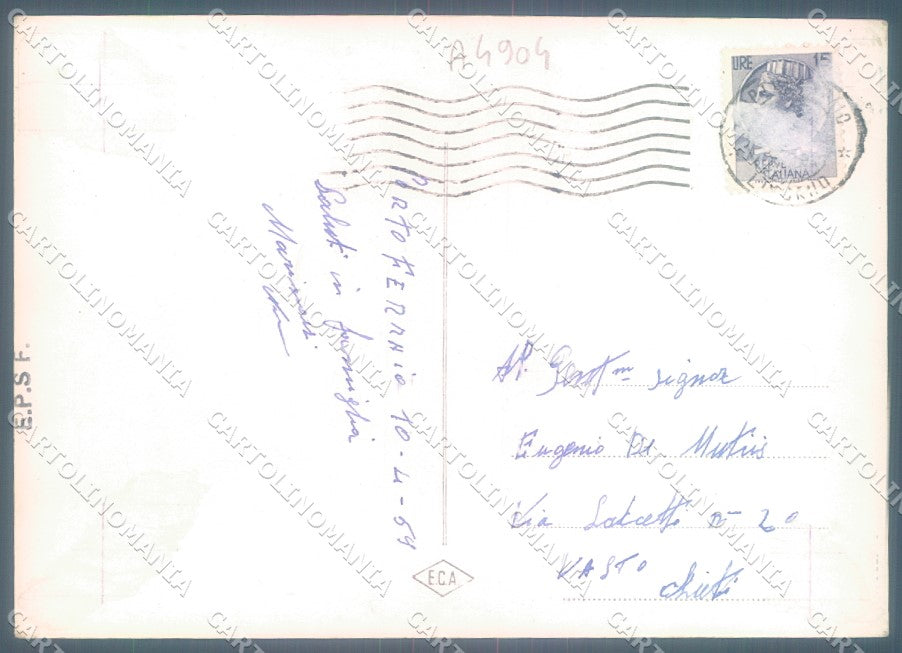 A4904
LIRE 15
ITALIANA
PORTOFERRAIO 10-4-54
Saluti in famiglia
E.P.S.F.
Al Gentm signor
Eugenio De Mutiis
Via n- 20
VASTO
Chieti
E.C.A
CARTOLINOMANIA